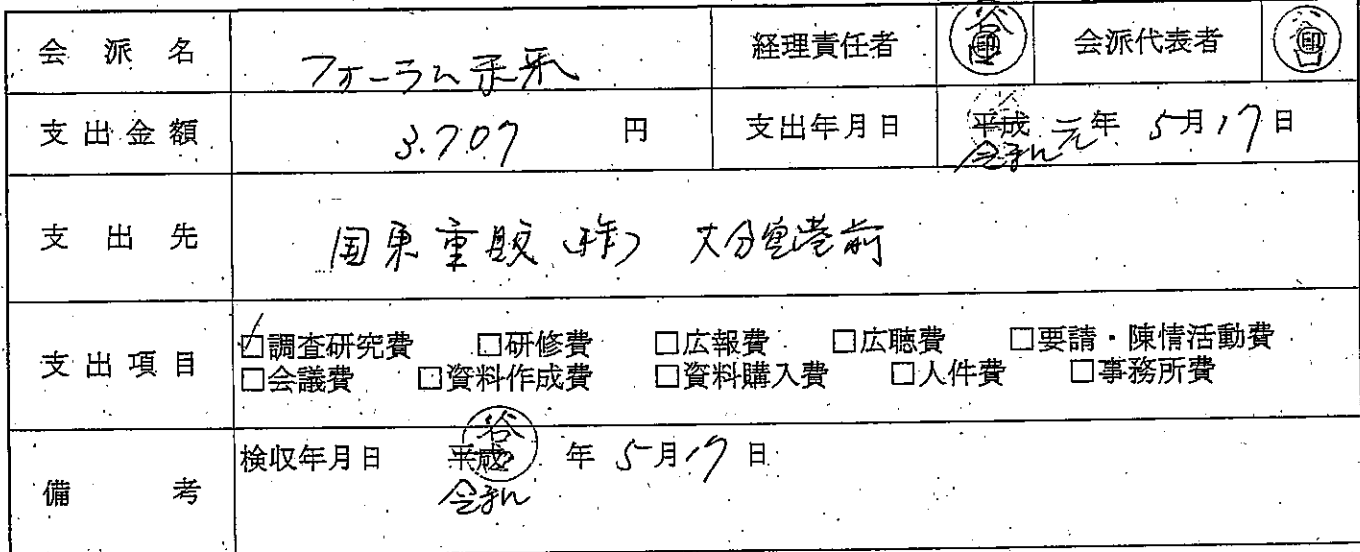 会派名 フォーラム未来 経理責任者 谷口 印 会派代表者 谷口 印
支出金額 3.707 円 支出年月日 平成 令和 元年 5月17日
支出先 国東重販(株) 大分空港前
支出項目 ☑調査研究費 □研修費 □広報費 □広聴費 □要請・陳情活動費
□会議費 □資料作成費 □資料購入費 □人件費 □事務所費
備考 検収年月日 平成 年 5月17日
令和